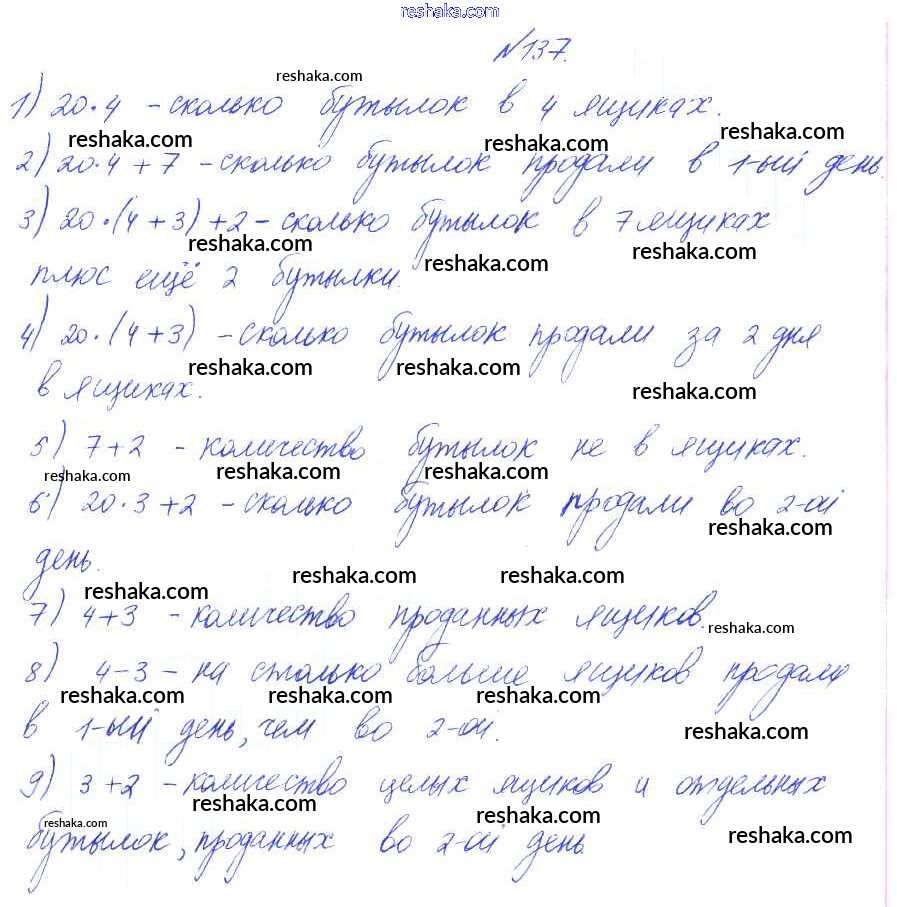 reshaka.com
№137.
reshaka.com
1) 20·4 - сколько бутылок в 4 ящиках.
reshaka.com reshaka.com reshaka.com
2) 20·4 + 7 - сколько бутылок продали в 1-ый день.
3) 20·(4 + 3) + 2 - сколько бутылок в 7 ящиках
reshaka.com reshaka.com reshaka.com
плюс ещё 2 бутылки.
4) 20·(4 + 3) - сколько бутылок продали за 2 дня
reshaka.com reshaka.com reshaka.com
в ящиках.
5) 7 + 2 - количество бутылок не в ящиках.
reshaka.com reshaka.com reshaka.com
6) 20·3 + 2 - сколько бутылок продали во 2-ой
reshaka.com
день.
reshaka.com reshaka.com reshaka.com
7) 4 + 3 - количество проданных ящиков.
reshaka.com
8) 4 - 3 - на столько больше ящиков продали
reshaka.com reshaka.com reshaka.com
в 1-ый день, чем во 2-ой.
reshaka.com
9) 3 + 2 - количество целых ящиков и отдельных
reshaka.com reshaka.com reshaka.com
бутылок, проданных во 2-ой день.
reshaka.com